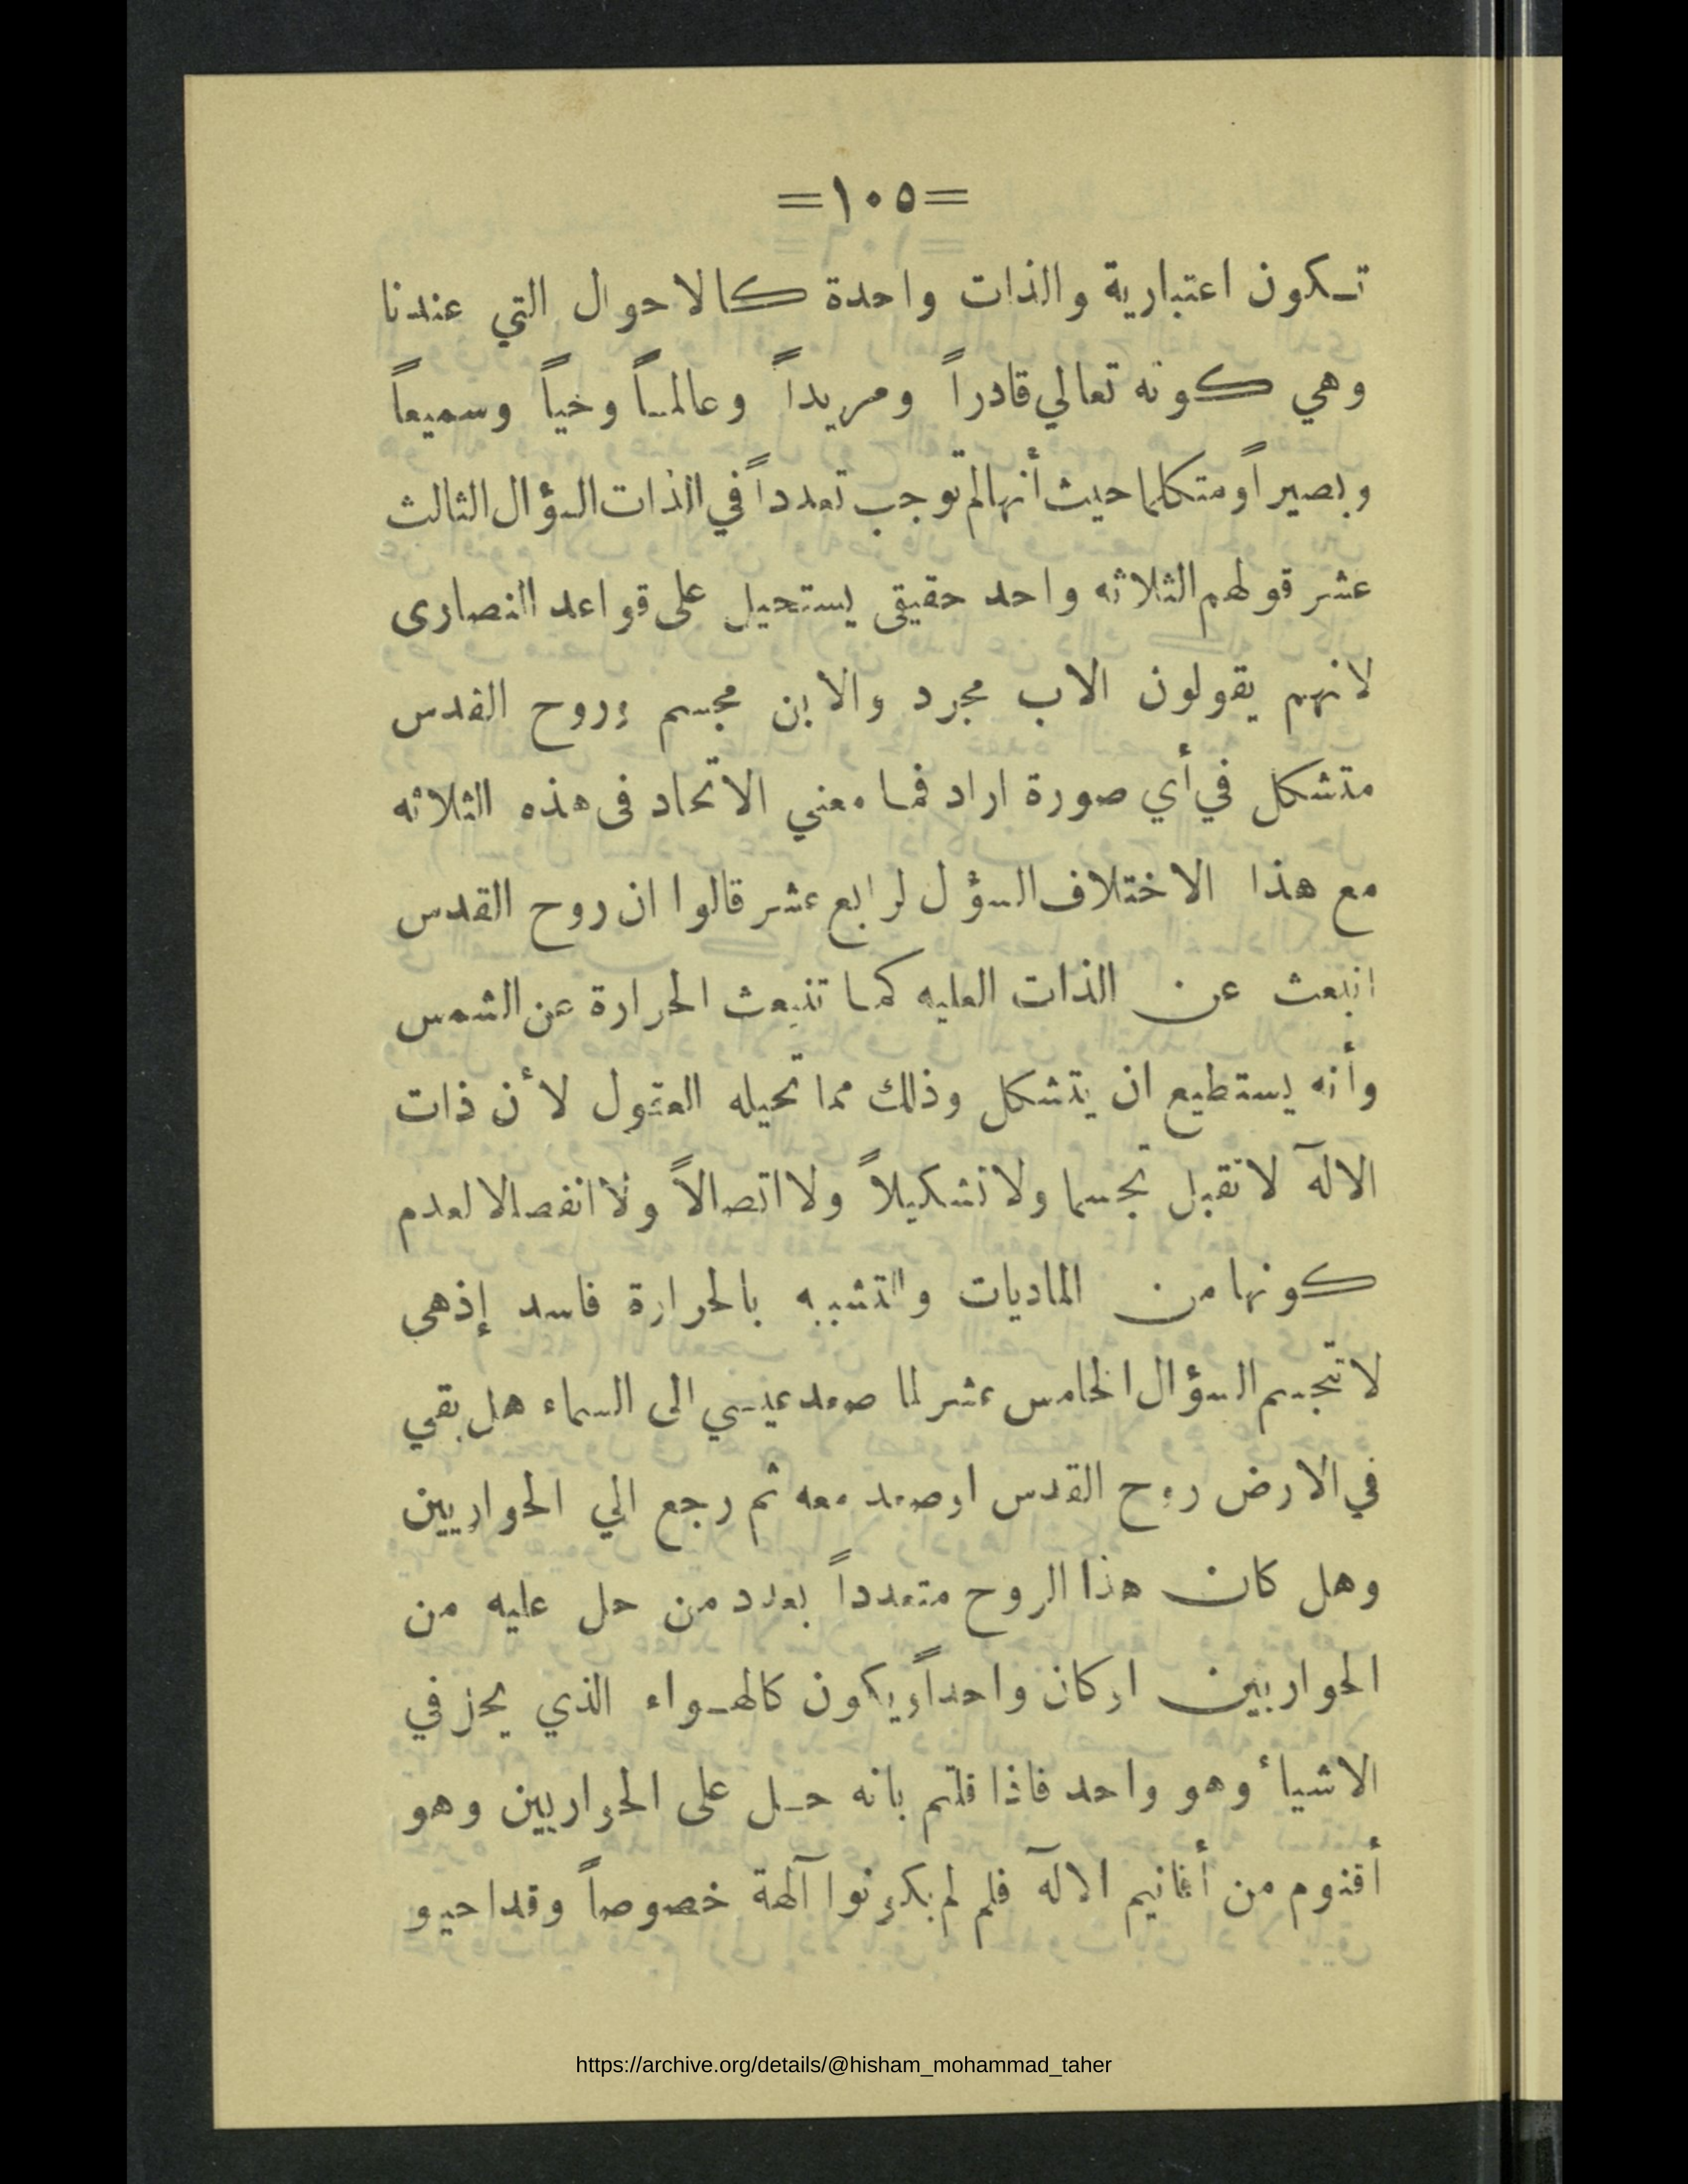 =١٠٥=
تـكون اعتبارية والذات واحدة كالاحوال التي عندنا
وهي كونه تعالي قادراً ومريداً وعالمـاً وخياً وسميعاً
وبصيراً ومتكلما حيث أنها لم توجب تعدداً في الذات السؤال الثالث
عشر قولهم الثلاثه واحد حقيقى يستحيل على قواعد النصارى
لانهم يقولون الاب مجرد والابن مجسم وروح القدس
متشكل في أي صورة اراد فمـا معني الاتحاد فى هذه الثلاثه
مع هذا الاختلاف السؤل لرابع عشر قالوا ان روح القدس
انبعث عن الذات العليه كمـا تنبعث الحرارة عن الشمس
وأنه يستطيع ان يتشكل وذلك مما تحيله العقول لأن ذات
الالٓه لا تقبل تجسما ولا تشكيلاً ولا اتصالاً ولا انفصالا لعدم
كونها من الماديات والتشبيه بالحرارة فاسد إذهى
لا تتجسم السؤال الخامس عشر لما صعد عيسي الى السماء هل بقي
في الارض روح القدس اوصعد معه ثم رجع الي الحواريين
وهل كان هذا الروح متعدداً بعدد من حل عليه من
الحواريين اوكان واحداً ويكون كالهـواء الذي يحز في
الاشياء وهو واحد فاذا قلتم بانه حـل على الحواريين وهو
أقنوم من أقانيم الالٓه فلم لم يكونوا آلهة خصوصاً وقد احيو
https://archive.org/details/@hisham_mohammad_taher